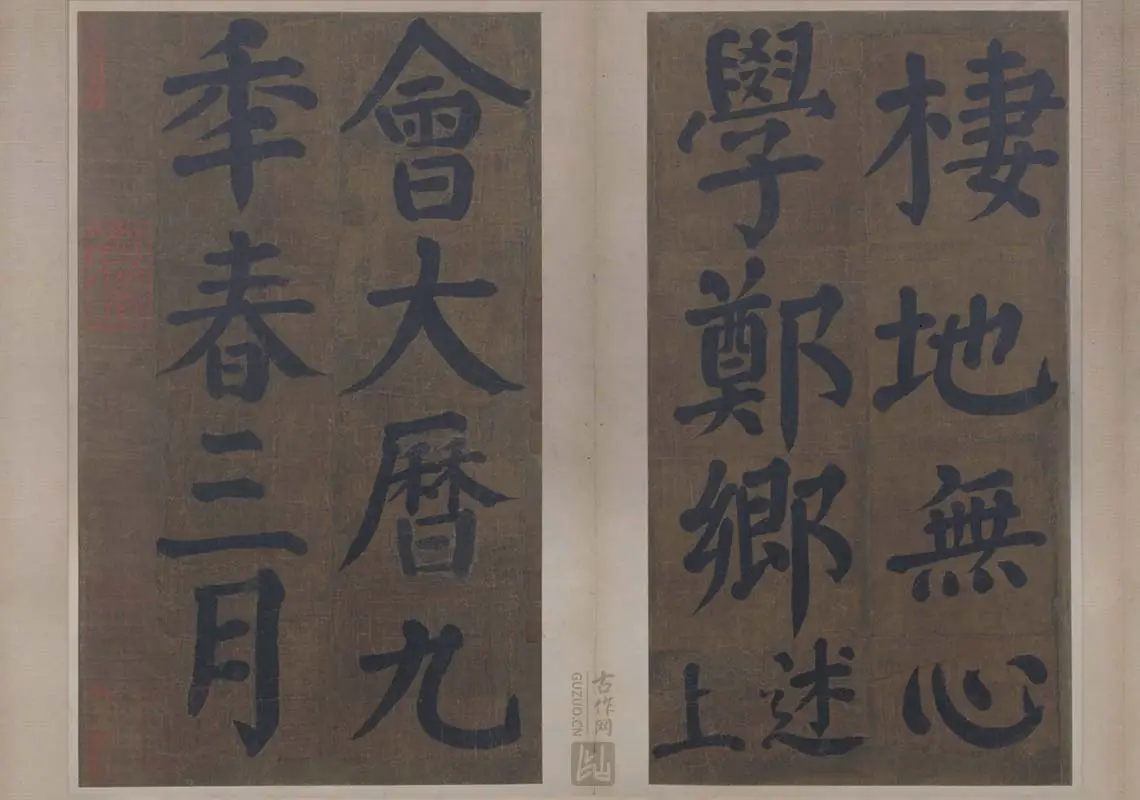 棲地無心
學鄭鄉述上
會大曆九
秊春三月
古作网
GUZUO.CN